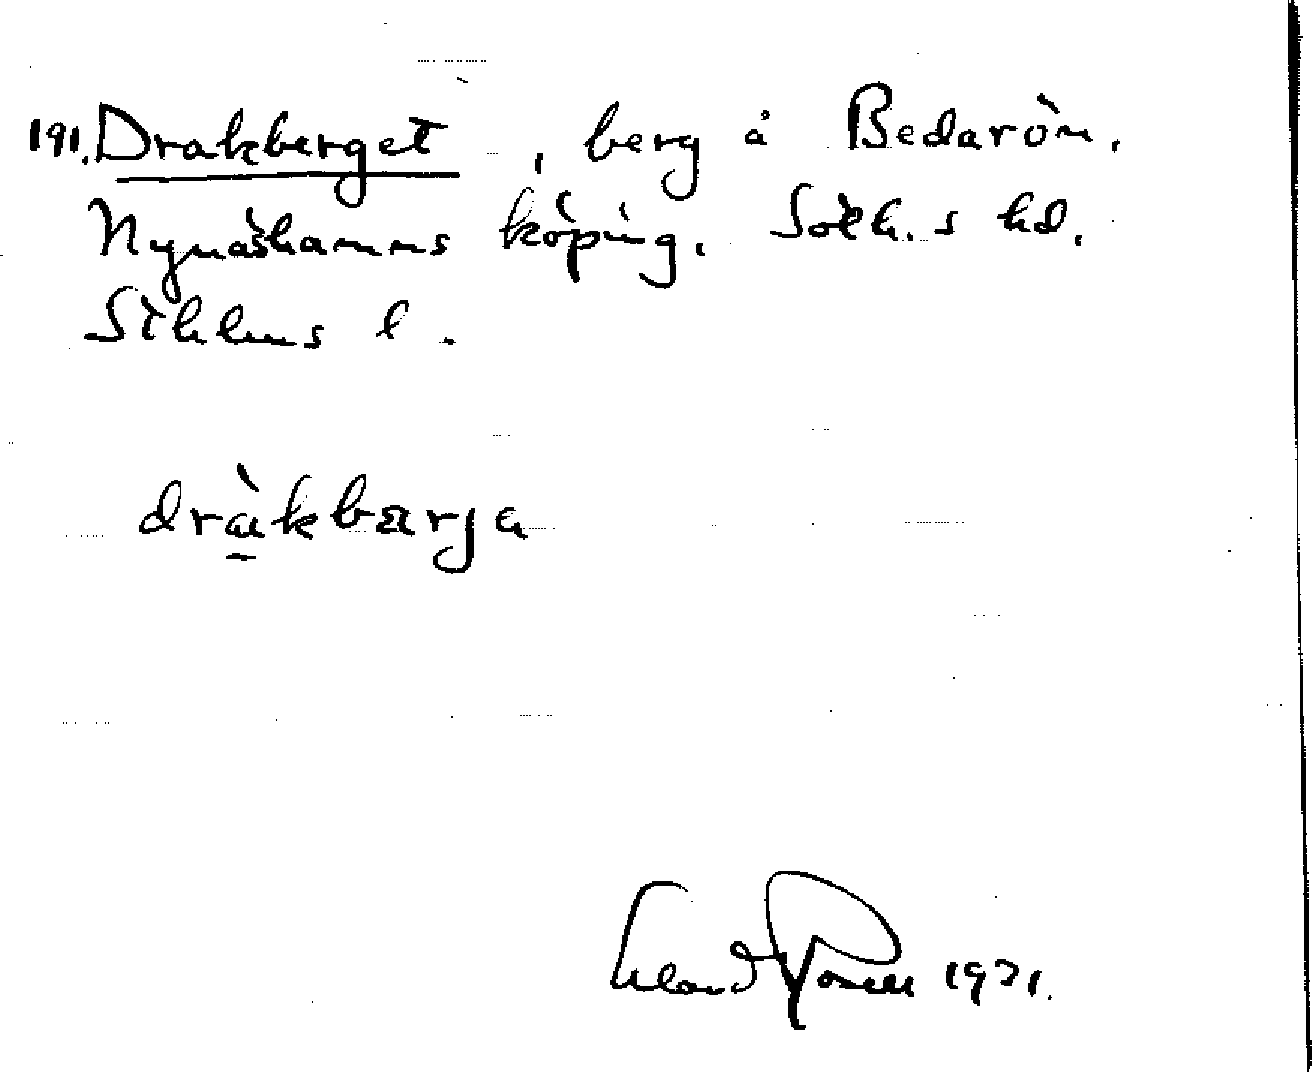 191. Drakberget, berg å Bedarön.
Nynäshamns köping. Soth.s hd.
Sthlms l.
dràkbærja
1931.